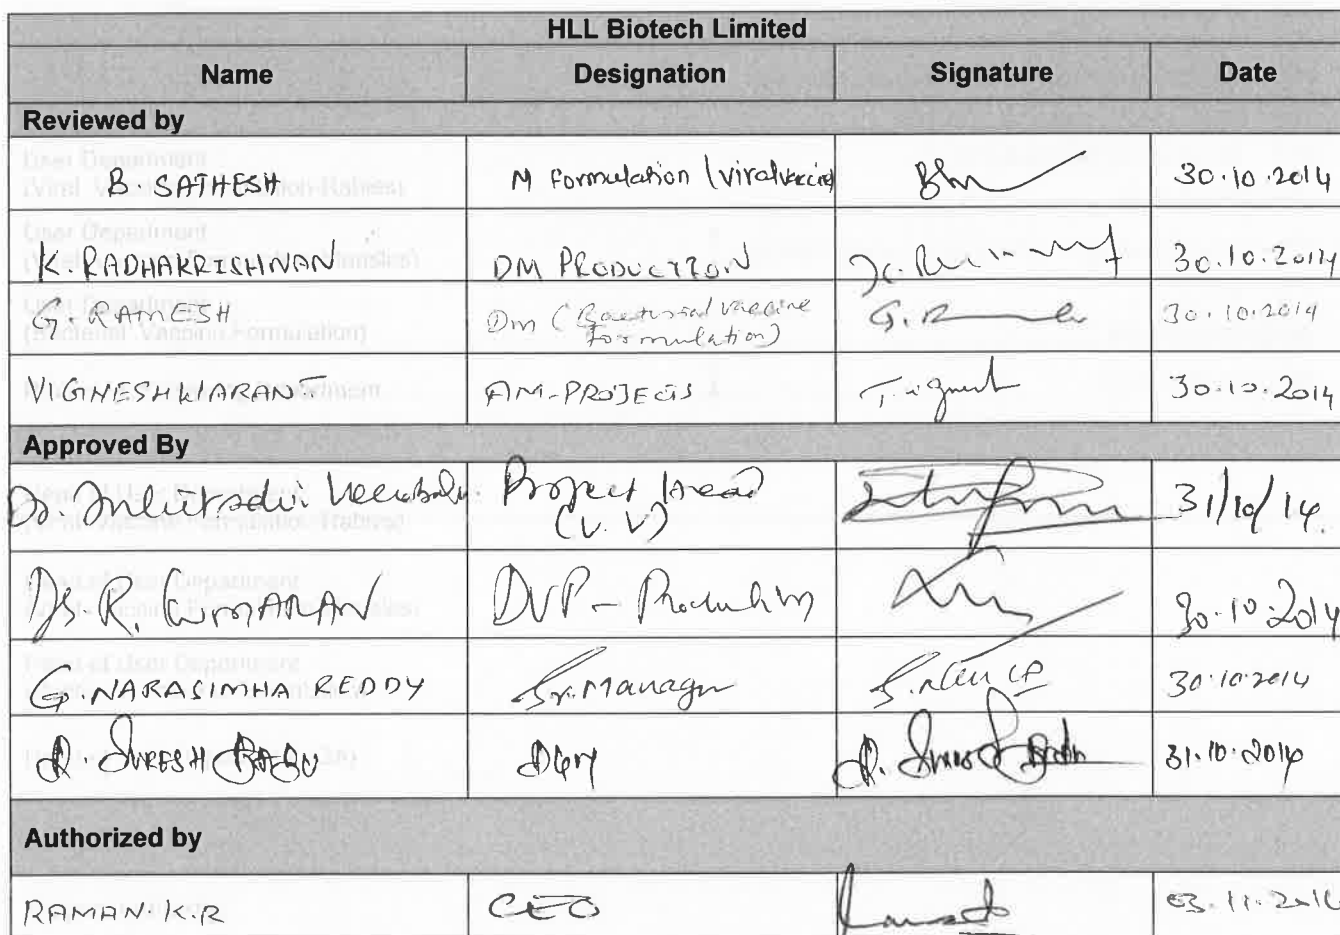 HLL Biotech Limited
Name Designation Signature Date
Reviewed by
B. SATHESH M Formulation (viral vaccine) 30.10.2014
K. RADHAKRISHNAN DM PRODUCTION 30.10.2014
G. RAMESH DM (Bacterial vaccine formulation) G. R 30.10.2014
VIGNESHWARAN T AM-PROJECTS 30.10.2014
Approved By
Dr. Project Head (V.V) 31/10/14
Dr. R. DVP - Production 30.10.2014
G. NARASIMHA REDDY Sr. Manager 30.10.2014
R. SURESH BABU DGM R. Suresh Babu 31.10.2014
Authorized by
RAMAN. K.R CEO 03.11.201